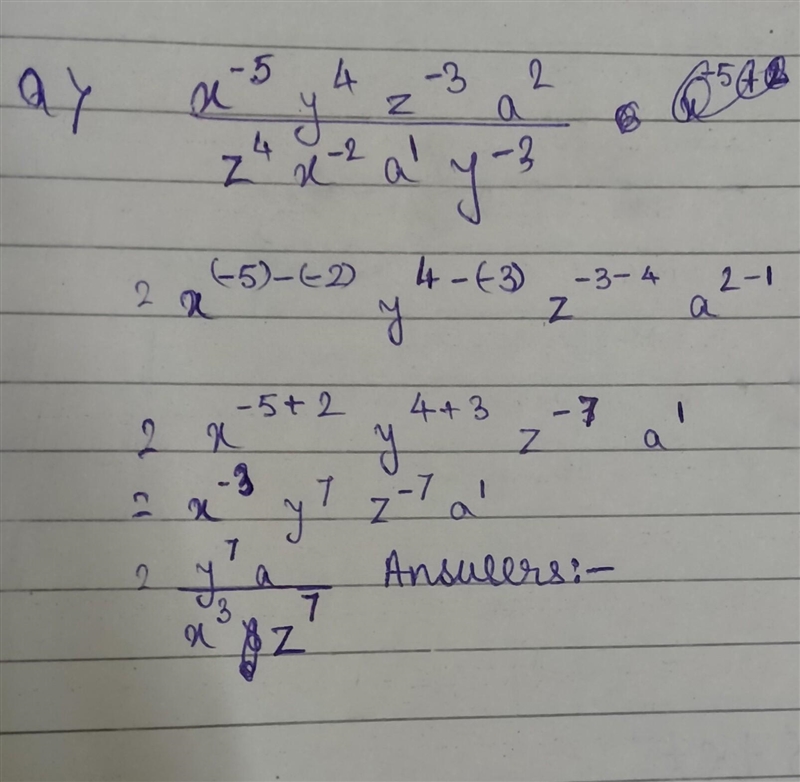 Q) x⁻⁵ y⁴ z⁻³ a² / z⁴ x⁻² a¹ y⁻³
= x⁽⁻⁵⁾⁻⁽⁻²⁾ y⁴⁻⁽⁻³⁾ z⁻³⁻⁴ a²⁻¹
= x⁻⁵⁺² y⁴⁺³ z⁻⁷ a¹
= x⁻³ y⁷ z⁻⁷ a¹
= y⁷ a / x³ z⁷ Answers:-